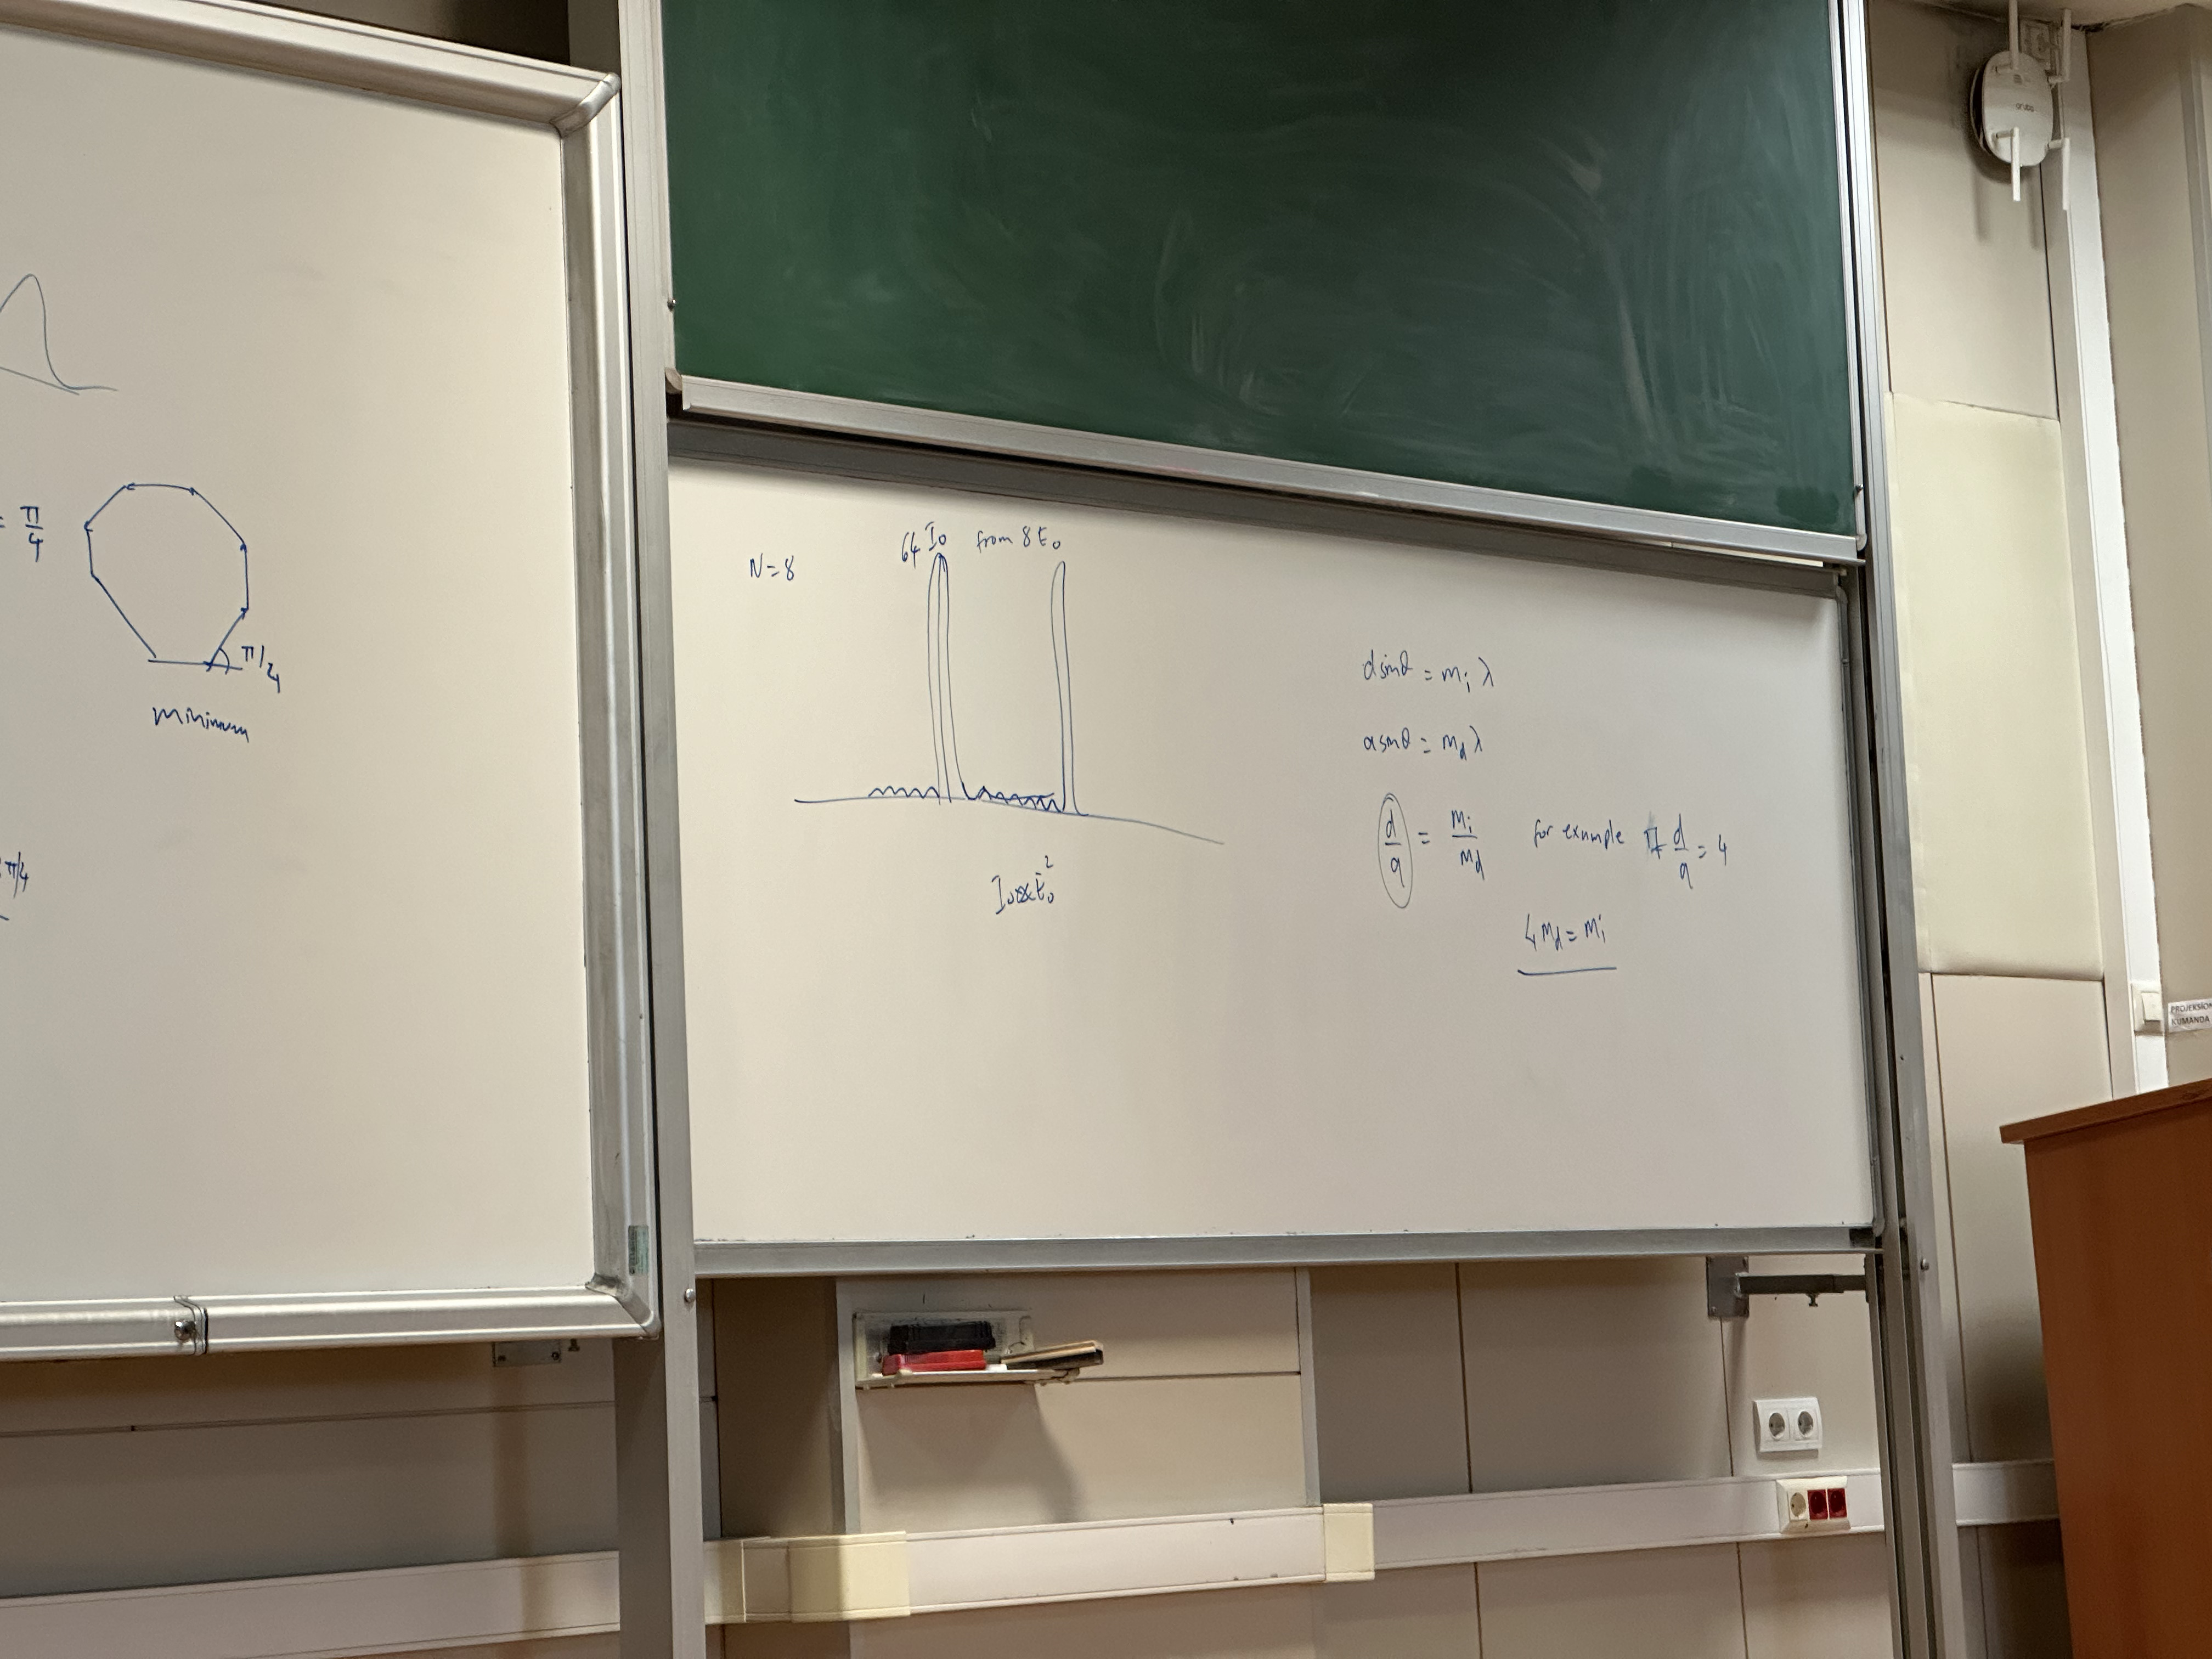 = π/4
π/4
minimum
π/4
N=8
64 I₀ from 8E₀
I₀ ∝ E₀²
d sinθ = mᵢ λ
a sinθ = m_d λ
d/a = mᵢ/m_d for exnmple If d/a = 4
4m_d = mᵢ
aruba
PROJEKSİON
KUMANDA